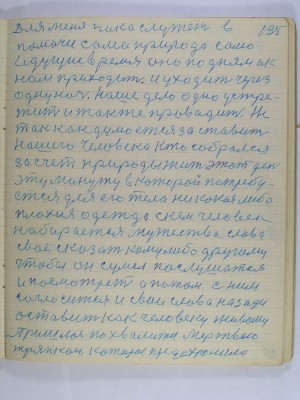 Для меня пока служет в 135
помочи сама природа само
Идущие время оно по дням к
нам приходит и уходит через
одну ночь. Наше дело одно устре-
жит и также провадит. Не
так как думается заставит
нашего человека кто собрался
за счет природы жит этот ден
эту минуту в которой потребу-
ется для его тела никакая либо
плохия одежда с кем человек
набирается мужества слова
свое сказат кому либо другому
чтобы он сумел послушатся
и посмотрет а потом с ним
согласится и свои слова назади
оставит как человеку живому
Пришлося похвалится Мертвою
тряпкою которая предохронила